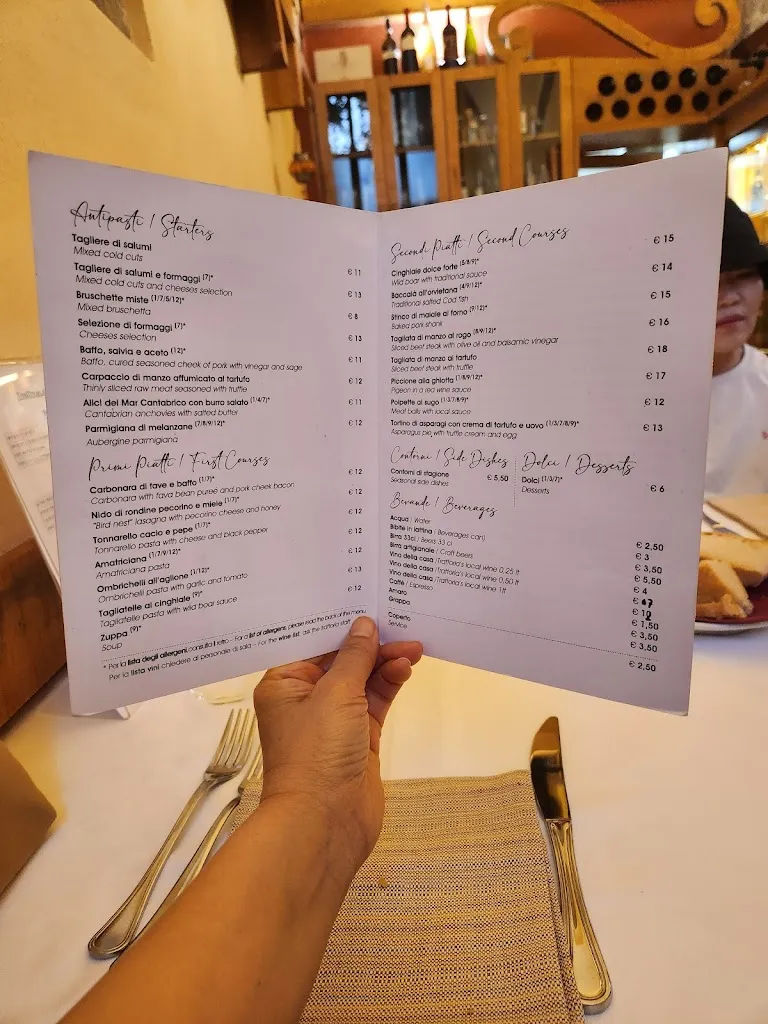 Antipasti / Starters
Tagliere di salumi
Mixed cold cuts € 11
Tagliere di salumi e formaggi (7)*
Mixed cold cuts and cheeses selection € 13
Bruschette miste (1/7/5/12)*
Mixed bruschetta € 8
Selezione di formaggi (7)*
Cheeses selection € 13
Baffo, salvia e aceto (12)*
Baffo, cured seasoned cheek of pork with vinegar and sage € 11
Carpaccio di manzo affumicato al tartufo
Thinly sliced raw meat seasoned with truffle € 12
Alici del Mar Cantabrico con burro salato (1/4/7)*
Cantabrian anchovies with salted butter € 11
Parmigiana di melanzane (7/8/9/12)*
Aubergine parmigiana € 12
Primi Piatti / First Courses
Carbonara di fave e baffo (1/7)*
Carbonara with fava bean puree and pork cheek bacon € 12
Nido di rondine pecorino e miele (1/7)*
"Bird nest" lasagna with pecorino cheese and honey € 12
Tonnarello cacio e pepe (1/7)*
Tonnarello pasta with cheese and black pepper € 12
Amatriciana (1/7/9/12)*
Amatriciana pasta € 12
Ombrichelli all'aglione (1/12)*
Ombrichelli pasta with garlic and tomato € 12
Tagliatelle al cinghiale (9)*
Tagliatelle pasta with wild boar sauce € 13
Zuppa (9)*
Soup € 12
* Per la lista degli allergeni, consulta il retro – For a list of allergens, please read the back of the menu
Per la lista vini chiedere al personale di sala – For the wine list, ask the trattoria staff
Secondi Piatti / Second Courses
Cinghiale dolce forte (5/8/9)* € 15
Wild boar with traditional sauce
Baccalà all'orvietana (4/9/12)* € 14
Traditional salted Cod fish
Stinco di maiale al forno (9/12)* € 15
Baked pork shank
Tagliata di manzo al rogo (8/9/12)* € 16
Sliced beef steak with olive oil and balsamic vinegar
Tagliata di manzo al tartufo € 18
Sliced beef steak with truffle
Piccione alla ghiotta (1/8/9/12)* € 17
Pigeon in a red wine sauce
Polpette al sugo (1/3/7/8/9)* € 12
Meat balls with local sauce
Tortino di asparagi con crema di tartufo e uovo (1/3/7/8/9)* € 13
Asparagus pie with truffle cream and egg
Contorni / Side Dishes
Contorni di stagione € 5,50
Seasonal side dishes
Dolci / Desserts
Dolci (1/3/7)*
Desserts € 6
Bevande / Beverages
Acqua / Water € 2,50
Bibite in lattina / Beverages can) € 3
Birra 33cl / Beers 33 cl € 3,50
Birra artigianale / Craft beers € 5,50
Vino della casa /Trattoria's local wine 0,25 lt € 4
Vino della casa /Trattoria's local wine 0,50 lt € 7
Vino della casa /Trattoria's local wine 1lt € 12
Caffè / Espresso € 1,50
Amaro € 3,50
Grappa € 3,50
Coperto
Service € 2,50